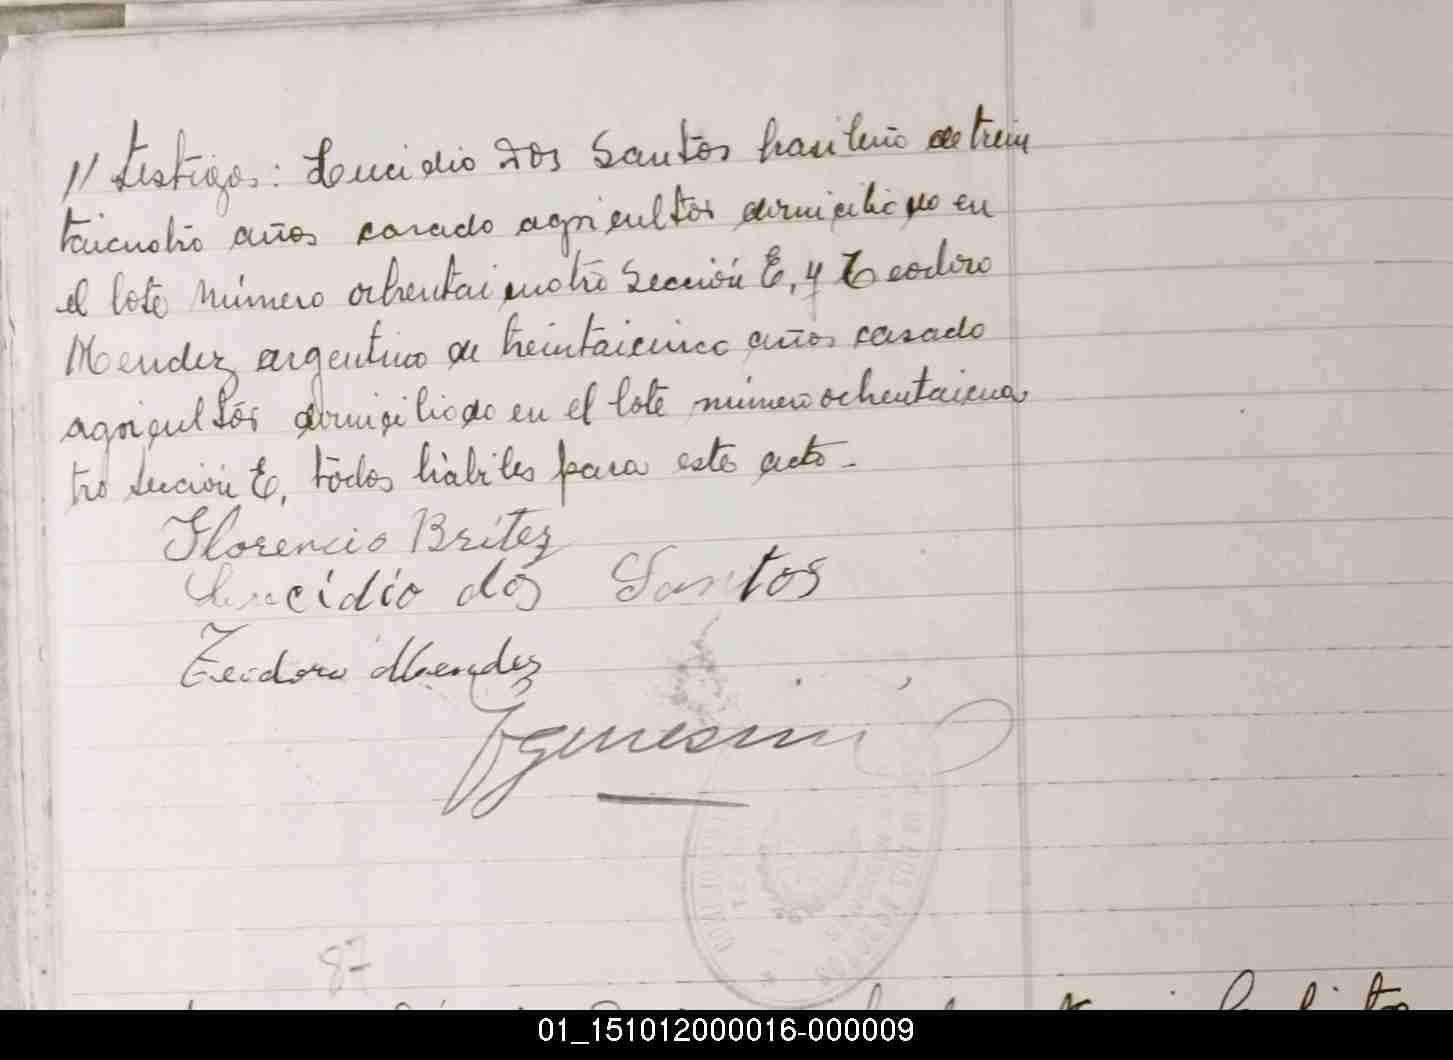 // testigos: Lucidio Dos Santos brasileño de trein
taicuatro años casado agricultor domiciliado en
el lote número ochentaicuatro Sección E, y Teodoro
Mendez argentino de treintaicinco años casado
agricultor domiciliado en el lote número ochentaicua
tro sección E, todos hábiles para este acto.
Florencio Britez
Lucidio dos Santos
Teodoro Mendez
87
01_151012000016-000009